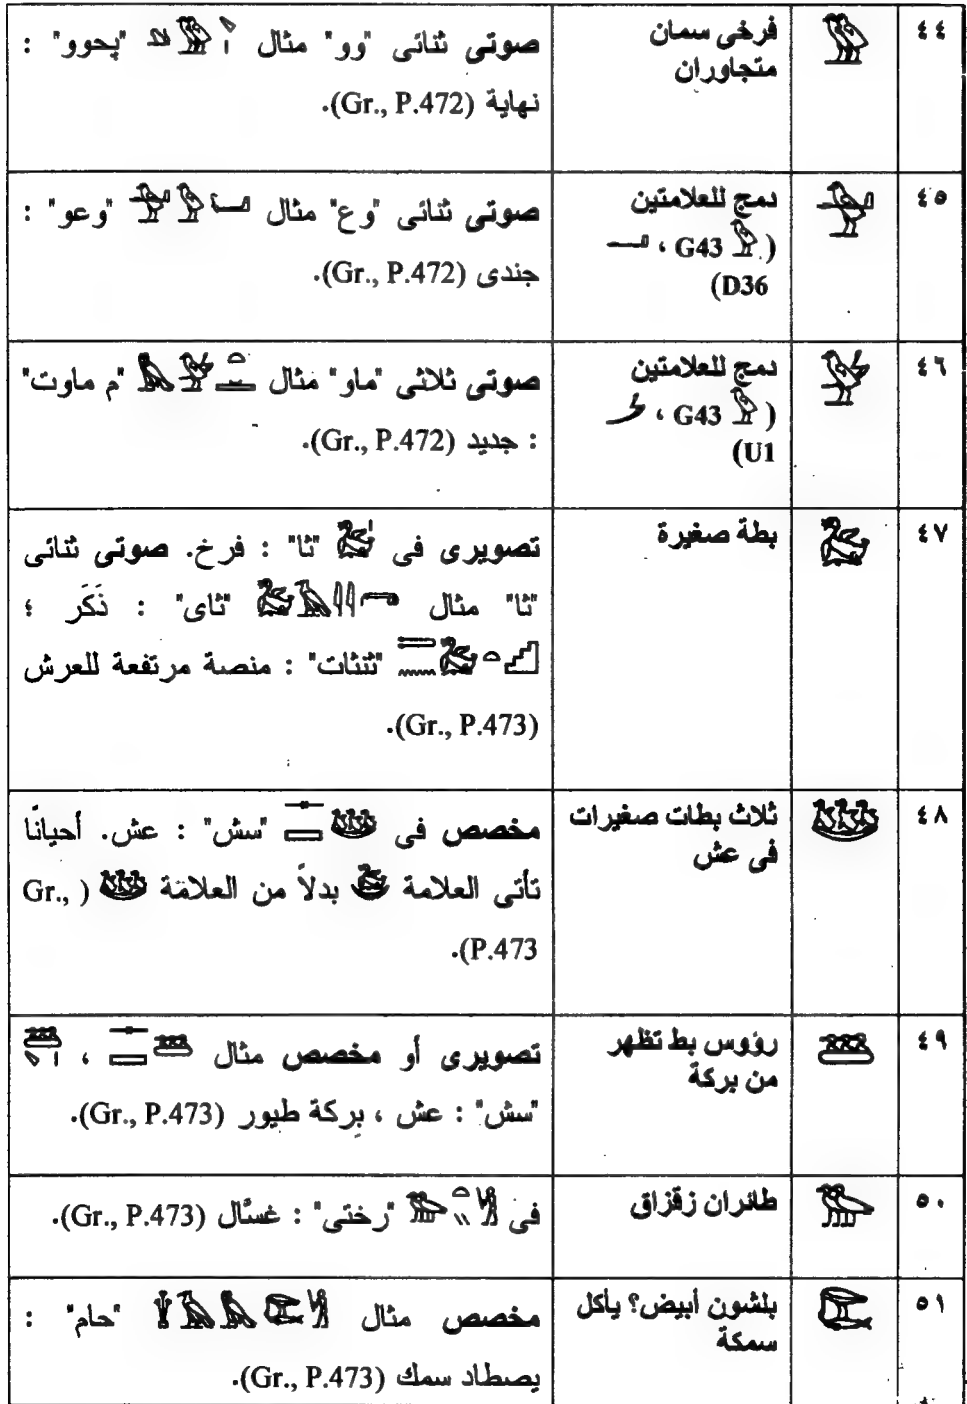 ٤٤ فرخى سمان صوتى ثنائى "وو" مثال "بحوو" :
متجاوران نهاية (Gr., P.472).
٤٥ دمج للعلامتين صوتى ثنائى "وع" مثال "وعو" :
( G43 ، جندى (Gr., P.472).
D36)
٤٦ دمج للعلامتين صوتى ثلاثى "ماو" مثال "م ماوت"
( G43 ، : جديد (Gr., P.472).
U1)
٤٧ بطة صغيرة تصويرى فى "ثا" : فرخ. صوتى ثنائى
"ثا" مثال "ثاى" : ذَكَر ؛
"ثنثات" : منصة مرتفعة للعرش
(Gr., P.473).
٤٨ ثلاث بطات صغيرات مخصص فى "سش" : عش. أحيانًا
فى عش تأتى العلامة بدلاً من العلامة (Gr.,
P.473).
٤٩ رؤوس بط تظهر تصويرى أو مخصص مثال ،
من بركة "سش" : عش ، بركة طيور (Gr., P.473).
٥٠ طائران زقزاق فى "رختى" : غسَّال (Gr., P.473).
٥١ بلشون أبيض؟ يأكل مخصص مثال "حام" :
سمكة يصطاد سمك (Gr., P.473).